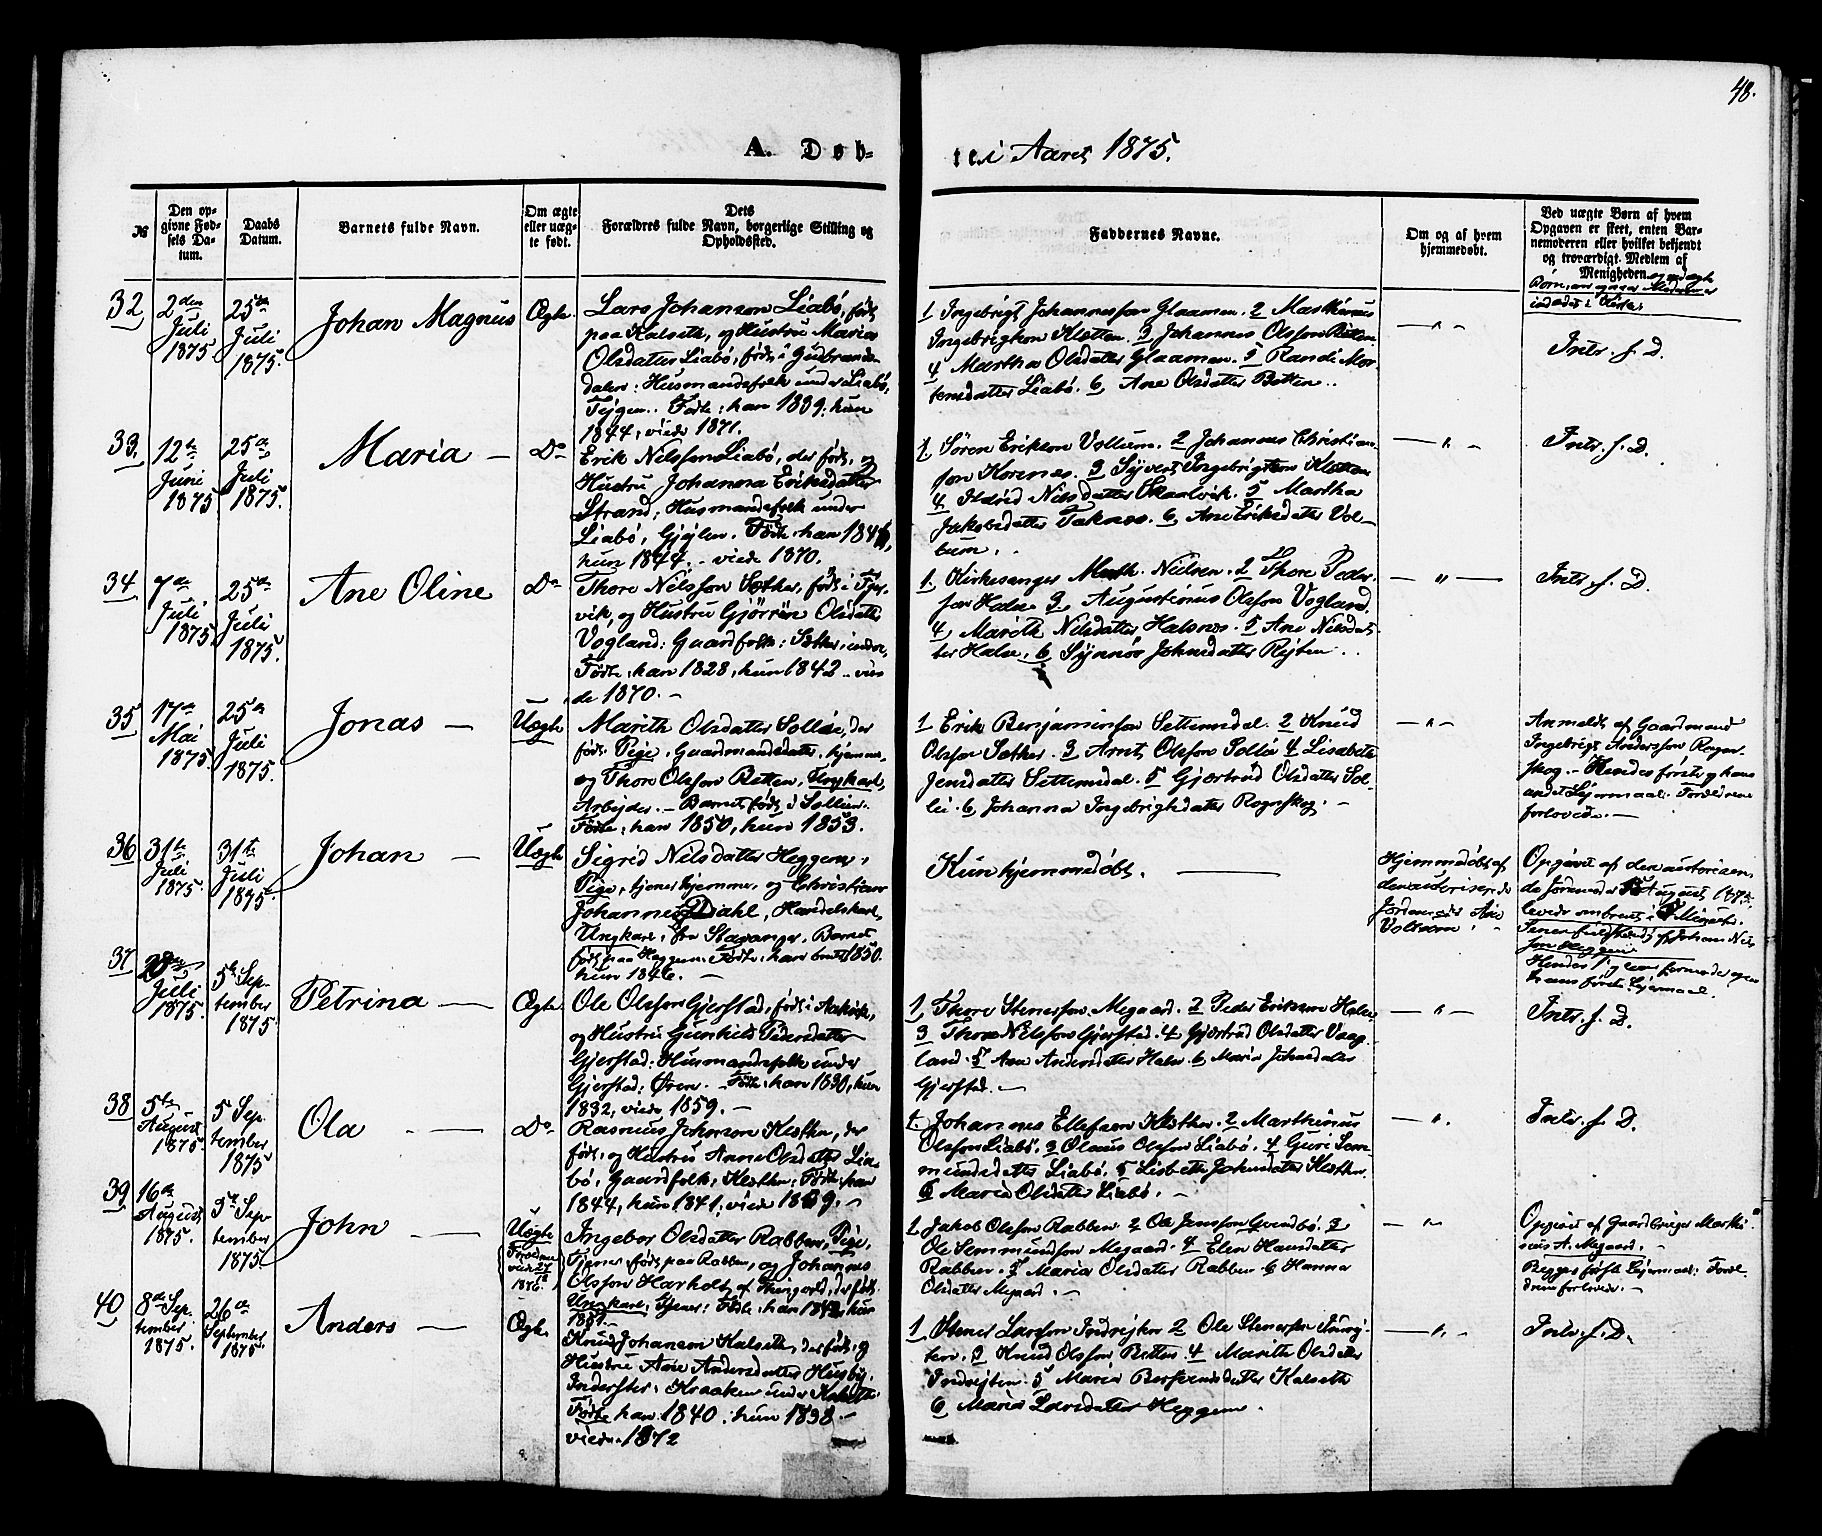 48.
A. Døb-
te i Aaret 1875.
№
Den opgivne Fødsels Datum.
Daabs Datum.
Barnets fulde Navn.
Om ægte eller uægte født.
Dets Forældres fulde Navn, borgerlige Stilling og Opholdssted.
Faddernes Navne.
Om og af hvem hjemmedøbt.
Ved uægte Børn af hvem Opgaven er skeet, enten Barnemoderen eller hvilket bekjendt og troværdigt Medlem af Menigheden
32
2den Juli 1875
25de Juli 1875.
Johan Magnus
Ægte
Lars Johansen Liabø, født
paa Kalseth, og Hustru Maria
Olsdatter Liabø, født i Gudbrands
dalen: Husmandsfolk under Liabø,
Fødte: han 1839, hun
1844, viede 1871.
1 Ingebrigt Johannesson Glaamen. 2 Marthinus
Ingebrigtson Kletten. 3 Johannes Olsson Betten.
4 Martha Olsdatter Glaamen. 5 Randi Mor-
tensdatter Liabø. 6, Ane Olsdatter Betten.
— " —
Intr. f. D.
33.
12te Juni 1875
25de Juli 1875.
Maria —
Do
Erik Nilsson Liabø, der født, og
Hustru Johanna Eriksdatter
Strand, Husmandsfolk under
Liabø, Fødte: han 1844,
hun 1844. viede 1870.
1. Søren Erikson Vollum. 2 Johannes Christian-
son Korsnes. 3 Syvert Ingebrigtson
4 Ildrid Nilsdatter Skaalvik. 5 Martha
Jakobsdatter Taknes. 6 Ane Eriksdatter Vol-
lum.
— " —
Intr. f. D.
34
7de Juli 1875.
25de Juli 1875.
Ane Oline
Do
Thore Nilsson Sæther, født i
vik, og Hustru Gjørrøn Olsdatter
Vogland: Gaardfolk: Sæther, indre,
Fødte: han 1828, hun 1842 vie
de 1870. —
1. Kirkesanger Math. Nielsen. 2 Thore Peder-
son Halse 3 Augustinus Olsson Vogland.
4 Marith Nilsdatter Halsnes. 5 Ane Nilsdat-
ter Halse, 6 Synnøv Johnsdatter Rejten.
— " —
Intr. f. D.
35
17de Mai 1875
25de Juli 1875.
Jonas —
Uægte
Marith Olsdatter Sollie, der
født. Pige, Gaardmandsdatter, hjemme,
og Thore Olsson Betten, Ungkarl,
Arbejder. — Barnet født i Sollien.
Fødte: han 1850, hun 1853.
1 Erik Benjaminson Settemsdal. 2 Knud
Olsson Sæther. 3 Arnt Olsson Sollie 4 Lisabeth
Jensdatter Settemsdal. 5 Gjærtrud Olsdatter Sol-
lie. 6 Johanna Ingebrigtsdatter Rognskog. —
— " —
Anmeldt af Gaardmand
Ingebrigt Andersson Rogn-
skog. — Hendes første og hans
andet Lejermaal. Forældrene
forlovede. —
36
31te Juli 1875.
31te Juli 1875.
Johan —
Uægte
Sigrid Nilsdatter Heggem,
Pige, tjener hjemme, og Christian
Johannes Dahl, Handelskarl,
Ungkarl, fra Stavanger. Barnet
født paa Heggem. Fødte: han omtr 1850.
hun 1846. —
Kun hjemmedøbt. —
Hjemmedøbt af
den autoriserede
Jordemoder Ane
Vollum.
Opgivet af den autoriseren
de Jordmoder August 1875,
levede omtrent Minut.
Hendes og hans første Lejermaal.
37
Juli 1875.
5te September 1875
Petrina —
Ægte
Ole Olsson Gjerstad, født i Aakvik,
og Hustru Gunhild Pedersdatter
Gjerstad: Husmandsfolk under
Gjerstad: Øren. — Fødte: han 1830, hun
1832, viede 1859. —
1, Thore Stenersson Megaard. 2 Peder Erikson Halse
3 Thore Nilsson Gjerstad. 4 Gjørtrud Olsdatter Vaag-
land. 5 Ane Andersdatter Halse. 6 Maria Johnsdatter
Gjerstad. —
— " —
Intr. f. D.
38
5te August 1875.
5 September 1875
Ola —
Do
Rasmus Johnson Kløthn, der
født, og Hustru Anne Olsdatter Lia-
bø, Gaardfolk, Kløthn, Fødte: han
1844, hun 1841, viede 1869. —
1. Johannes Ellefsen Kløthn. 2 Marthinus
Olsson Liabø. 3 Olaus Olsson Liabø. 4 Guri Sem-
mundsdatter Liabø. 5 Lisbeth Johnsdatter Kløthn.
6 Maria Olsdatter Liabø. —
— " .
Intr. f. D.
39
16de August 1875.
5te September 1875.
John —
Uægte
Ingebor Olsdatter Rabben, Pige,
Tjener, født paa Rabben, og Johannes
Olsson Harholt af Thingvold, der født.
Ungkarl, Tjener: Fødte: han 1842, hun
1851. —
1. Jakob Olsson Rabben 2 Ole Jensson Qvendbø. 3
Ole Semmundson Megaard. 4 Elen Hansdatter
Rabben. 5 Maria Olsdatter Rabben 6 Hanna
Olsdatter Megaard. —
— " —
Opgivet af Gaardbruger Marthi-
nus A. Megaard. —
Begges første Lejermaal: Foræl-
drene forlovede. —
40
8de September 1875.
26de September 1875.
Anders —
Ægte
Knud Johansen Kalseth, der født, og
Hustru Ane Andersdatter Husby,
Inderster: Kraaken under Kalseth
Fødte han 1840, hun 1838. —
viede 1872
1 Stener Larsson Indrejten 2 Ole Stenersson
3 Knud Olsson Betten. 4 Marith Olsdatter
Indrejten. 5 Maria Bersvendsdatter Kalseth
6 Maria Larsdatter Heggem.
— " —
Intr. f. D.